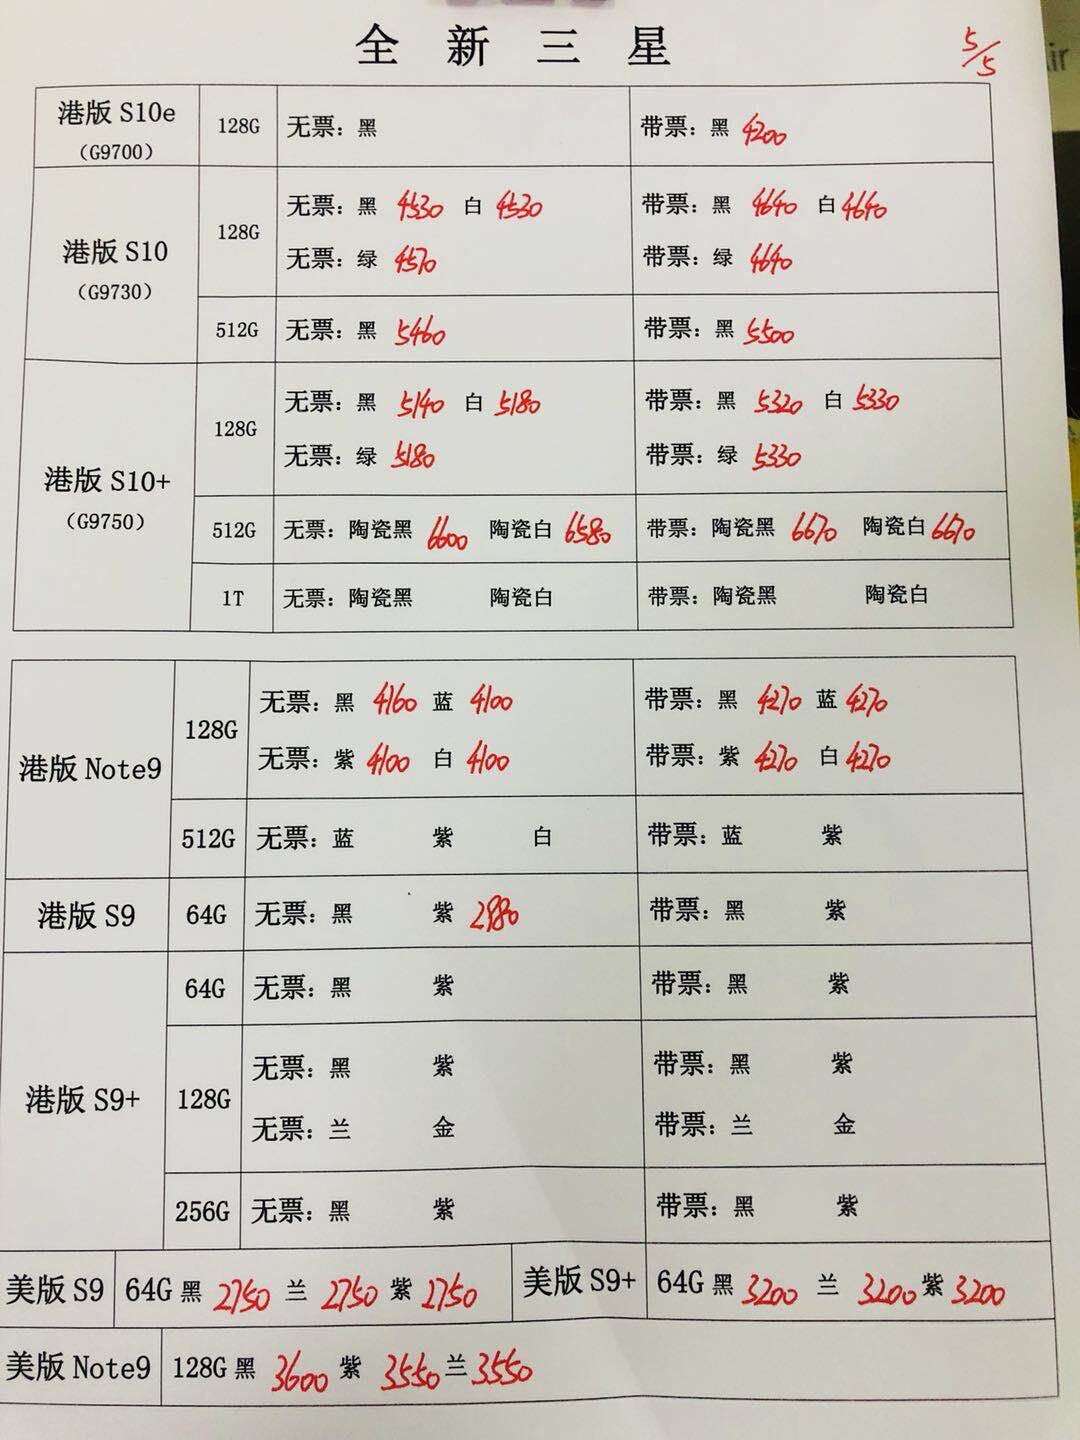 全新三星
5/5
ir
港版 S10e
（G9700）
128G
无票：黑
带票：黑 4200
港版 S10
（G9730）
128G
无票：黑 4530 白 4530
无票：绿 4570
带票：黑 4640 白 4640
带票：绿 4640
512G
无票：黑 5460
带票：黑 5500
港版 S10+
（G9750）
128G
无票：黑 5140 白 5180
无票：绿 5180
带票：黑 5320 白 5330
带票：绿 5330
512G
无票：陶瓷黑 6600 陶瓷白 6580
带票：陶瓷黑 6670 陶瓷白 6670
1T
无票：陶瓷黑 陶瓷白
带票：陶瓷黑 陶瓷白
港版 Note9
128G
无票：黑 4160 蓝 4100
无票：紫 4100 白 4100
带票：黑 4270 蓝 4270
带票：紫 4270 白 4270
512G
无票：蓝 紫 白
带票：蓝 紫
港版 S9
64G
无票：黑 紫 2980
带票：黑 紫
港版 S9+
64G
无票：黑 紫
带票：黑 紫
128G
无票：黑 紫
无票：兰 金
带票：黑 紫
带票：兰 金
256G
无票：黑 紫
带票：黑 紫
美版 S9
64G 黑 2750 兰 2750 紫 2750
美版 S9+
64G 黑 3200 兰 3200 紫 3200
美版 Note9
128G 黑 3600 紫 3550 兰 3550